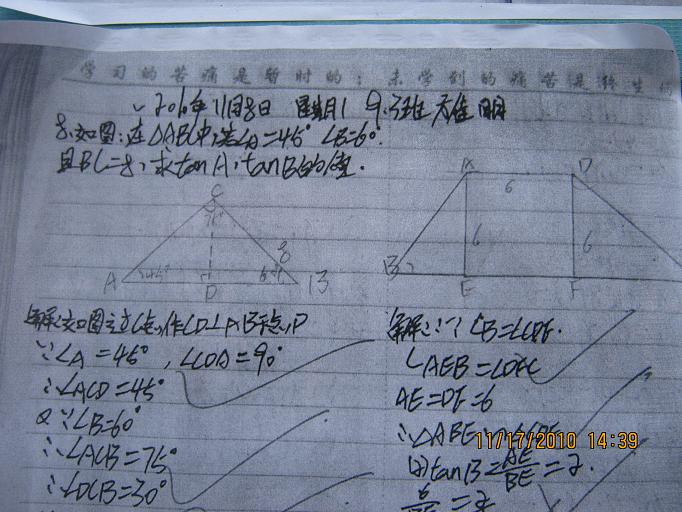 学习的苦痛是暂时的；未学到的痛苦是终生的
2010年11月8日 星期1
8、如图：在△ABC中，若∠A=45° ∠B=60°
且BC=8，求tanA，tanB的值.
C
75°
A 45° D 60° B
8
A D
6
6 6
B E F
解：如图过C点，作CD⊥AB于点D
∵∠A=45°，∠CDA=90°
∴∠ACD=45°
又∵∠B=60°
∴∠ACB=75°
∴∠DCB=30°
解：(1)∵∠B=∠CDF.
∠AEB=∠DFC
AE=DF=6
∴△ABE
(2)tanB=AE/BE=2.
6 =2
11/17/2010 14:39